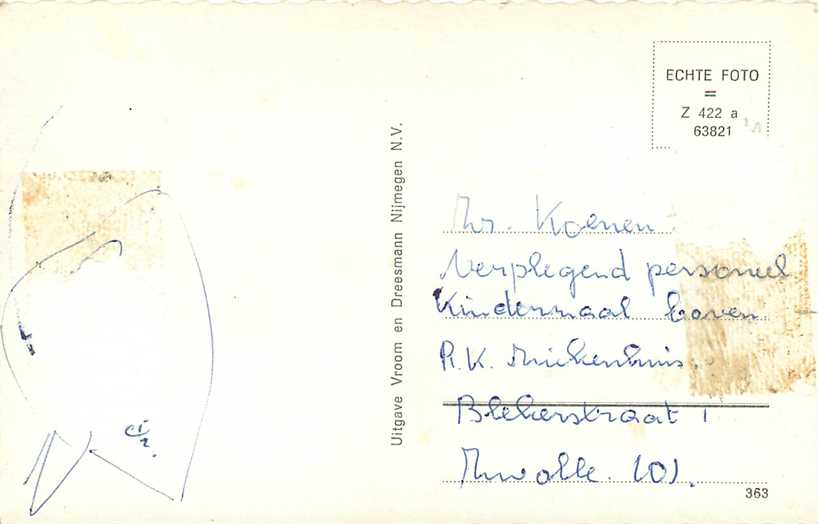 ECHTE FOTO
=
Z 422 a
63821
Uitgave Vroom en Dreesmann Nijmegen N.V.
Mr. Koenen
Verplegend personeel
Kinderzaal boven
R.K. Ziekenhuis.
Blekerstraat 1
Zwolle. (O).
363